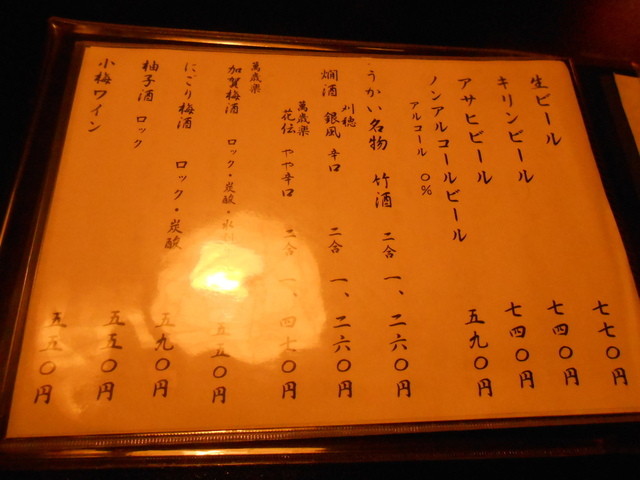 生ビール 七七〇円
キリンビール 七四〇円
アサヒビール 七四〇円
ノンアルコールビール 五九〇円
アルコール 〇%
うかい名物 竹酒 二合 一、二六〇円
燗酒 刈穂 銀風 辛口 二合 一、二六〇円
萬歳楽 花伝 やや辛口 二合 一、四七〇円
萬歳楽
加賀梅酒 ロック・炭酸・水割 五五〇円
にごり梅酒 ロック・炭酸 五九〇円
柚子酒 ロック 五五〇円
小梅ワイン 五五〇円